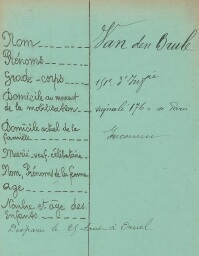 Nom Van den Brule
Prénoms
Grade - corps 151e d'Infrie
Domicile au moment
de la mobilisation
Domicile actuel de la
famille Inconnu
Marié - veuf - célibataire
Nom, Prénoms de la femme
age
Nombre et âge des
Enfants
Disparu le 25 à